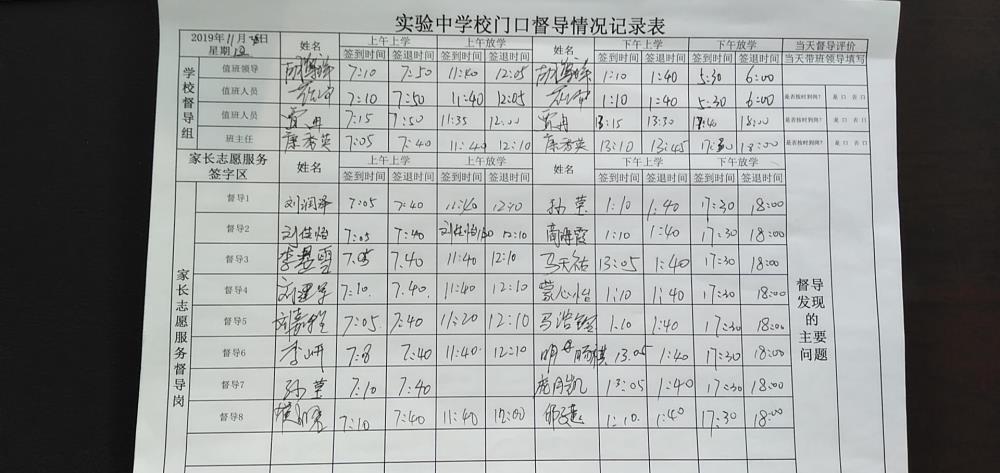 实验中学校门口督导情况记录表
2019年11月 日 姓名 上午上学 上午放学 姓名 下午上学 下午放学 当天督导评价
星期 签到时间 签退时间 签到时间 签退时间 签到时间 签退时间 签到时间 签退时间 当天带班领导填写
学校督导组
值班领导 7:10 7:50 11:40 12:05 1:10 1:40 5:30 6:00
值班人员 7:10 7:50 11:40 12:05 1:10 1:40 5:30 6:00 是否按时到岗? 是 口 否 口
值班人员 贾冉 7:15 7:50 11:35 12:00 贾冉 13:15 13:30 17:40 18:00 是否按时到岗? 是 口 否 口
班主任 康秀英 7:05 7:40 11:40 12:10 康秀英 13:10 13:45 17:30 18:00 是否按时到岗? 是 口 否 口
家长志愿服务签字区 姓名 上午上学 上午放学 姓名 下午上学 下午放学
签到时间 签退时间 签到时间 签退时间 签到时间 签退时间 签到时间 签退时间
家长志愿服务督导岗
督导1 刘润泽 7:05 7:40 11:40 12:10 孙莹 1:10 1:40 17:30 18:00
督导2 刘佳怡 7:05 7:40 刘佳怡 12:10 1:10 1:40 17:30 18:00
督导3 7:05 7:40 11:40 12:10 马天祐 13:05 1:40 17:30 18:00
督导4 7:10 7:40 11:40 12:10 蒙心怡 1:10 1:40 17:30 18:00
督导5 7:05 7:40 11:20 12:10 1:10 1:40 17:30 18:00
督导6 李妍 7:8 7:40 11:40 12:10 13:05 1:40 17:30 18:00
督导7 孙莹 7:10 7:40 庞月凯 13:05 1:40 17:30 18:00
督导8 7:10 7:40 11:40 12:00 1:10 1:40 17:30 18:00
督导
发现
的
主要
问题